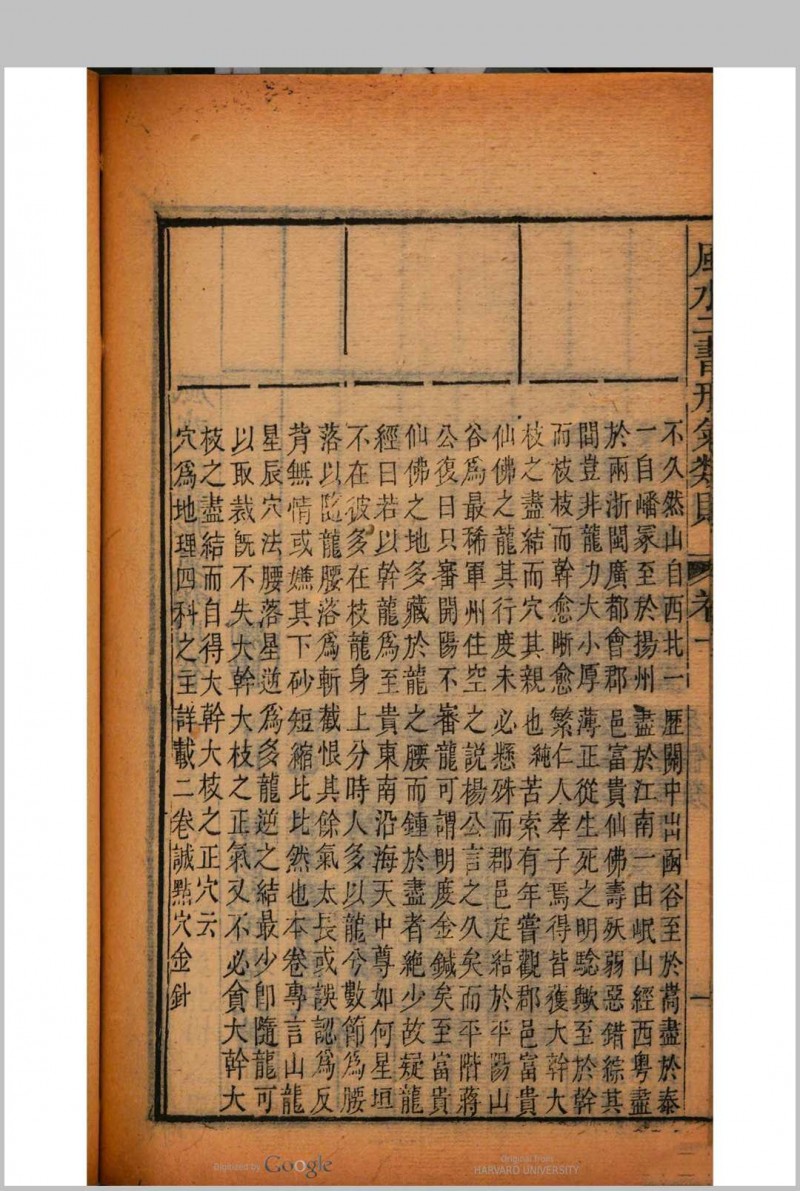 風水二書形氣類則 卷一
一
不久然山自西北一歷關中出函谷至於嵩盡於泰
一自嶓冢至於揚州盡於江南一由岷山經西粤盡
於兩浙閩廣都會郡邑富貴仙佛壽殀弱惡錯綜其
間豈非龍力大小厚薄正從生死之明騐歟至於幹
而枝枝而幹愈晰愈繁仁人孝子焉得皆獲大幹大
枝之盡結而穴其親也純苦索有年嘗觀郡邑富貴
仙佛之龍其行度未必懸殊而郡邑定結於平陽山
谷爲最稀軍州住空之説楊公言之久矣而平階蔣
公復曰只審開陽不審龍可謂明度金鍼矣至富貴
仙佛之地多藏於龍之腰而鍾於盡者絶少故疑龍
經曰若以幹龍爲至貴東南沿海天中尊如何星垣
不在彼多在枝龍身上分時人多以龍兮數節爲腰
落以隨龍腰落爲斬截恨其餘氣太長或誤認爲反
背無情或嫌其下砂短縮比比然也本卷專言山龍
星辰穴法腰落星逆爲多龍逆之結最少卽隨龍可
以取裁旣不失大幹大枝之正氣又不必貪大幹大
枝之盡結而自得大幹大枝之正穴云
穴爲地理四科之主詳載二卷誠點穴金針
Digitized by Google
Original from
HARVARD UNIVERSITY